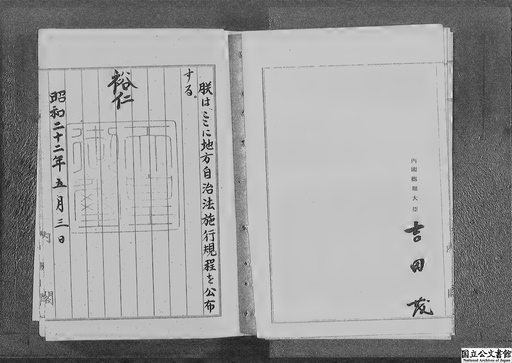 朕は、ここに地方自治法施行規程を公布
する。
裕仁
御璽
昭和二十二年五月三日
内閣
内閣総理大臣
吉田茂
国立公文書館
National Archives of Japan